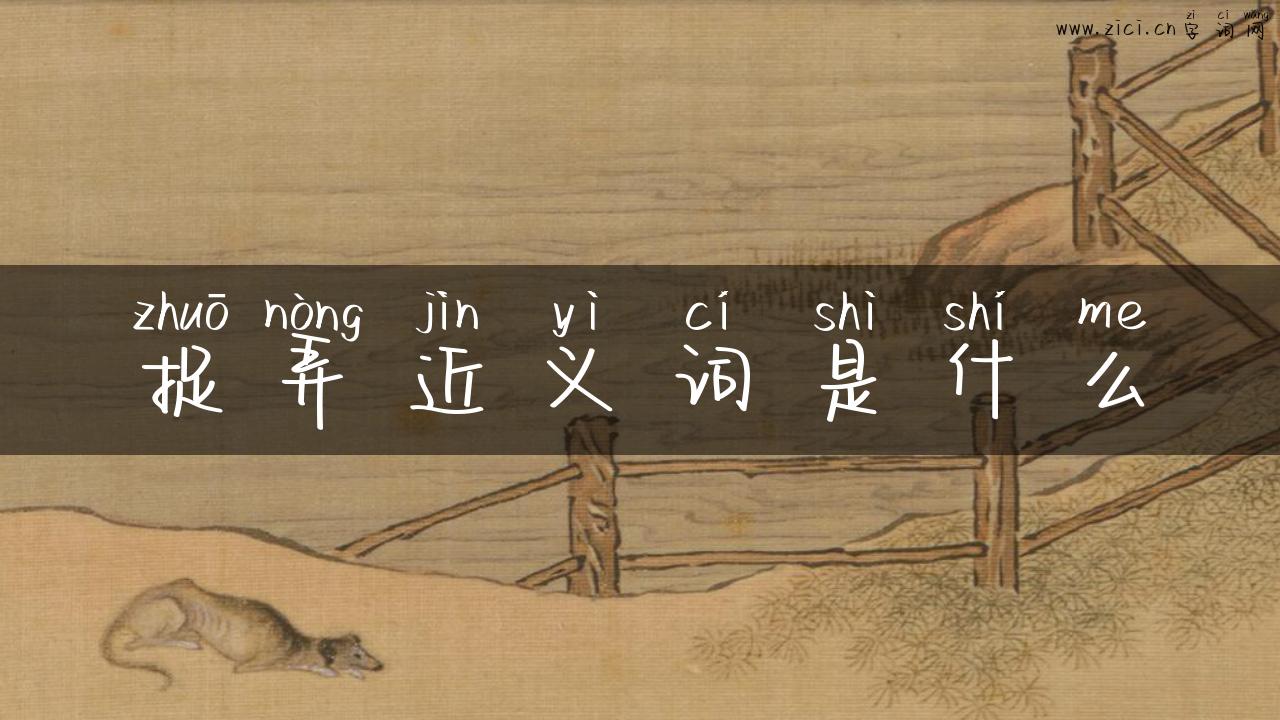 zi ci wang
www.zici.cn 字词网
zhuō nòng jìn yì cí shì shí me
捉弄近义词是什么